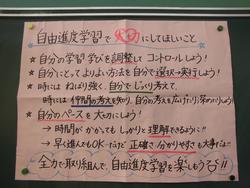 自由進度学習で大切にしてほしいこと
★自分の学習・学びを調整して コントロールしよう!
★自分にとってよりよい方法を自分で選択→実行しよう!
★時には ねばり強く、自分でじっくり考えて、
時には仲間の考えを知り、自分の考えを広げたり深めたりしよう!
★自分のペースを大切に!
→時間がかかっても しっかりと理解できるように!!
→早く進んでもOKだけど 正確さ・分かりやすさも大事だよ!
全力で取り組んで、自由進度学習を楽しもう!!